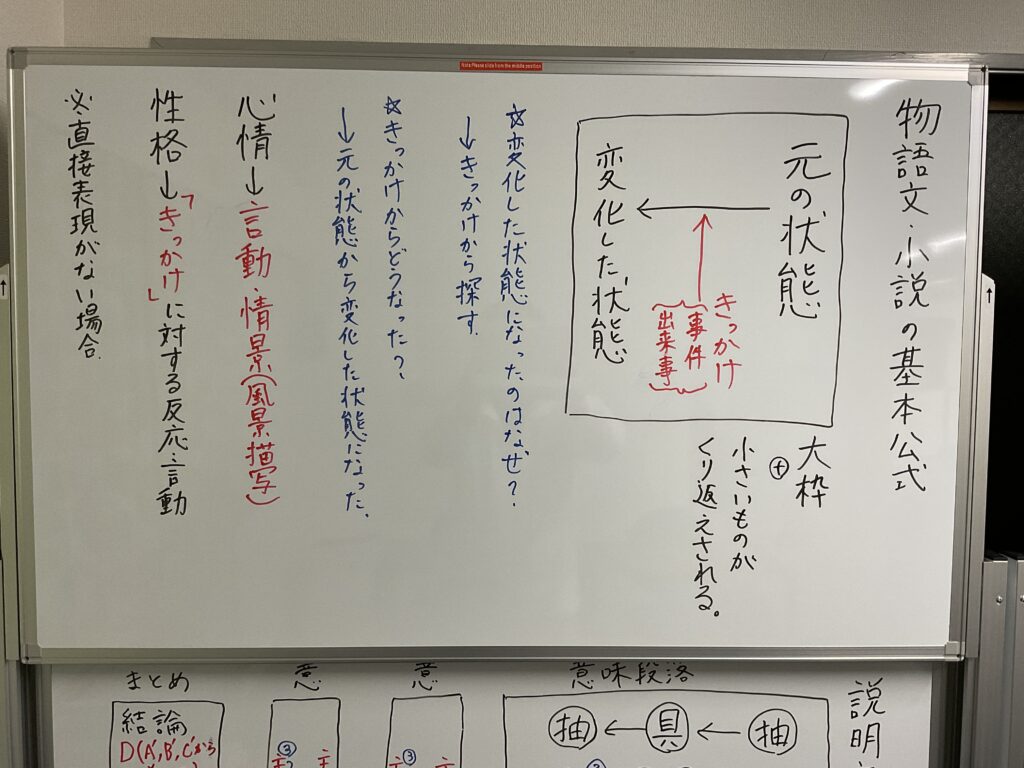 Note:Please slide from the middle position
物語文・小説の基本公式
元の状態
きっかけ
事件
出来事
変化した状態
大枠
＋
小さいものが
くり返えされる。
☆変化した状態になったのはなぜ?
→きっかけから探す.
☆きっかけからどうなった?
→元の状態から変化した状態になった.
心情→言動・情景(風景描写)
性格→「きっかけ」に対する反応・言動
※直接表現がない場合.
説明
意味段落
抽←具←抽
意
③
意
③
まとめ
結論
D(A',B',C'から